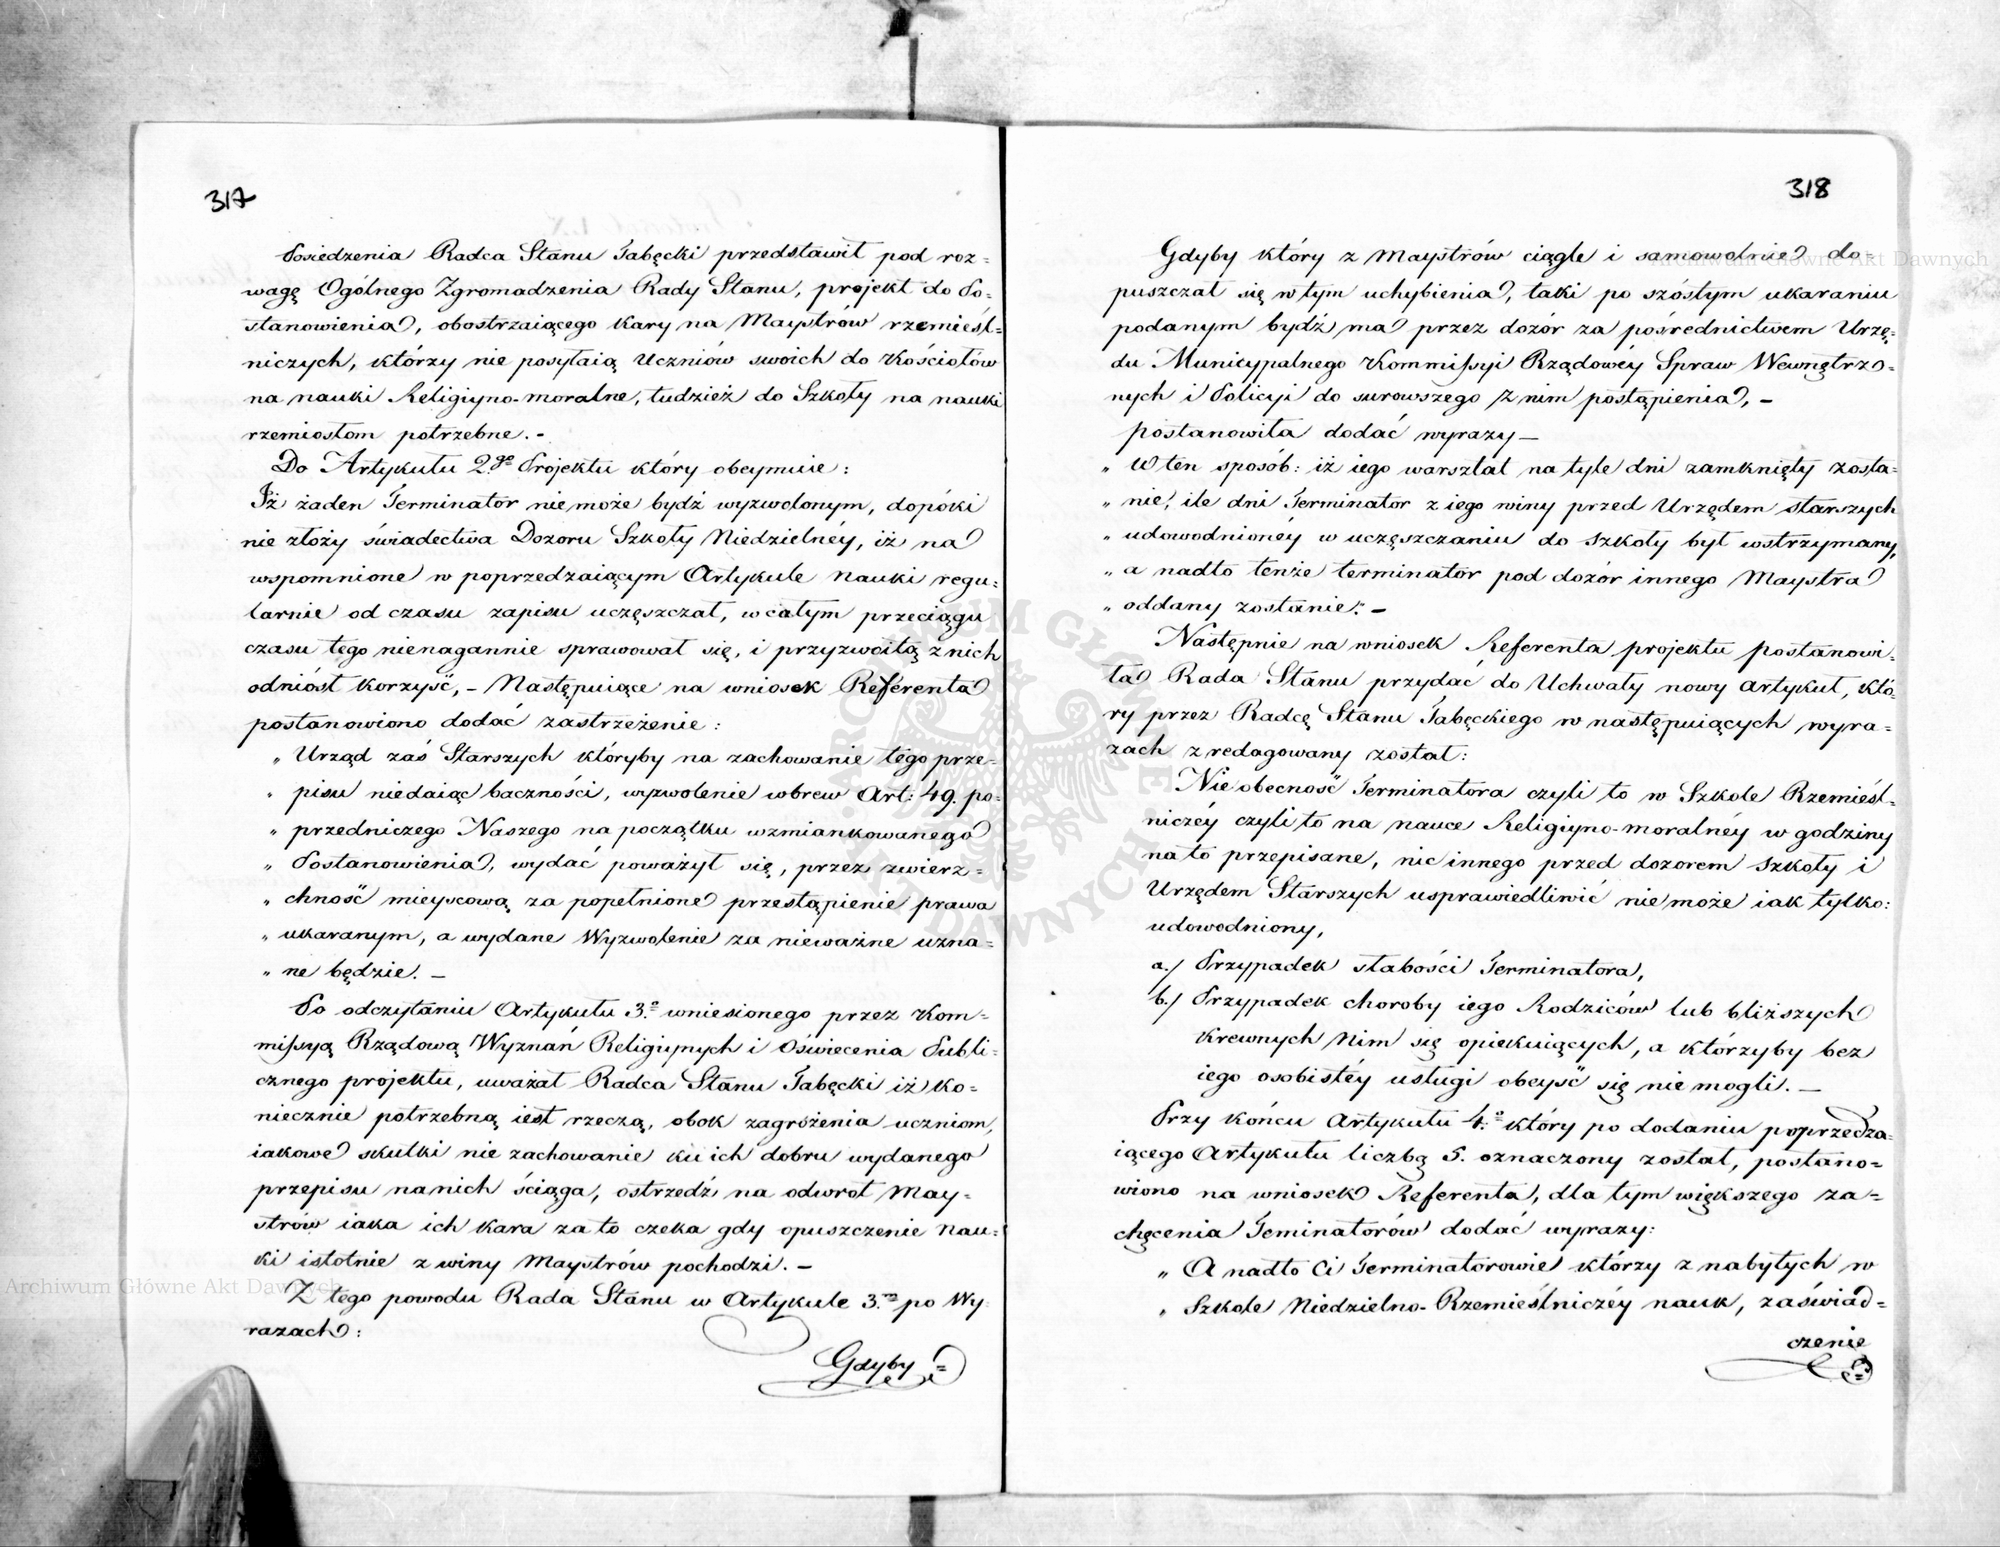 317
Posiedzenia Radca Stanu Tabęcki przedstawił pod roz=
wagę Ogólnego Zgromadzenia Rady Stanu, projekt do Po=
stanowienia, obostrzaiącego kary na Maystrów rzemieśl=
niczych, którzy nie posyłaią Uczniów swoich do Kościołów
na nauki Religiyno-moralne, tudzież do Szkoły na nauki
rzemiosłom potrzebne. -
Do Artykułu 2.go Projektu który obeymuie:
Iż żaden Terminator nie może bydź wyzwolonym, dopóki
nie złoży świadectwa Dozoru Szkoły Niedzielnéy, iż na
wspomnione w poprzedzaiącym Artykule nauki regu=
larnie od czasu zapisu uczęszczał, w całym przeciągu
czasu tego nienagannie sprawował się, i przyzwoitą z nich
odniósł korzyść, - Następuiące na wniosek Referenta
postanowiono dodać zastrzeżenie:
„ Urząd zaś Starszych któryby na zachowanie tego prze=
„ pisu niedaiąc baczności, wyzwolenie wbrew Art: 49. po=
„ przedniczego Naszego na początku wzmiankowanego
„ Postanowienia, wydać poważył się, przez zwierz=
„ chność mieyscową za popełnione przestąpienie prawa
„ ukaranym, a wydane Wyzwolenie za nieważne uzna=
„ ne będzie. -
Po odczytaniu Artykułu 3.o wniesionego przez Kom=
missyą Rządową Wyznań Religiynych i Oświecenia Publi=
cznego projektu, uważał Radca Stanu Tabęcki iż ko=
niecznie potrzebną iest rzeczą, obok zagrożenia uczniom,
iakowe skutki nie zachowanie ku ich dobru wydanego
przepisu na nich ściąga, ostrzedź na odwrót May=
strów iaka ich kara za to czeka gdy opuszczenie nau=
ki istotnie z winy Maystrów pochodzi. -
Z tego powodu Rada Stanu w Artykule 3.m po Wy=
razach:
Gdyby
318
Gdyby który z Maystrów ciągle i samowolnie do=
puszczał się w tym uchybienia, taki po szóstym ukaraniu
podanym bydź ma przez dozór za pośrednictwem Urzę=
du Municypalnego Kommissyi Rządowéy Spraw Wewnętrz=
nych i Policyi do surowszego z nim postąpienia, -
postanowiła dodać wyrazy -
„ W ten sposób: iż iego warsztat na tyle dni zamknięty zosta=
„ nie, ile dni Terminator z iego winy przed Urzędem starszych
„ udowodnionéy w uczęszczaniu do szkoły był wstrzymany,
„ a nadto tenże terminator pod dozór innego Maystra
„ oddany zostanie." -
Następnie na wniosek Referenta projektu postanowi=
ła Rada Stanu przydać do Uchwały nowy artykuł, któ=
ry przez Radcę Stanu Tabęckiego w następuiących wyra=
zach zredagowany został:
Nieobecność Terminatora czyli to w Szkole Rzemieśl=
niczéy czyli to na nauce Religiyno-moralnéy w godziny
na to przepisane, nic innego przed dozorem szkoły i
Urzędem Starszych usprawiedliwić nie może iak tylko:
udowodniony,
a./ Przypadek słabości Terminatora,
b./ Przypadek choroby iego Rodziców lub bliższych
krewnych Nim się opiekuiących, a którzyby bez
iego osobistéy usługi obeyść się nie mogli. -
Przy końcu Artykułu 4.o który po dodaniu poprzedza=
iącego Artykułu liczbą 5. oznaczony został, postano=
wiono na wniosek Referenta, dla tym większego za=
chęcenia Teminatorów dodać wyrazy:
„ A nadto Ci Terminatorowie którzy z nabytych w
„ Szkole Niedzielno-Rzemieślniczéy nauk, zaświad=
czenie
Archiwum Główne Akt Dawnych
Archiwum Główne Akt Dawnych
ARCHIWUM GŁÓWNE AKT DAWNYCH